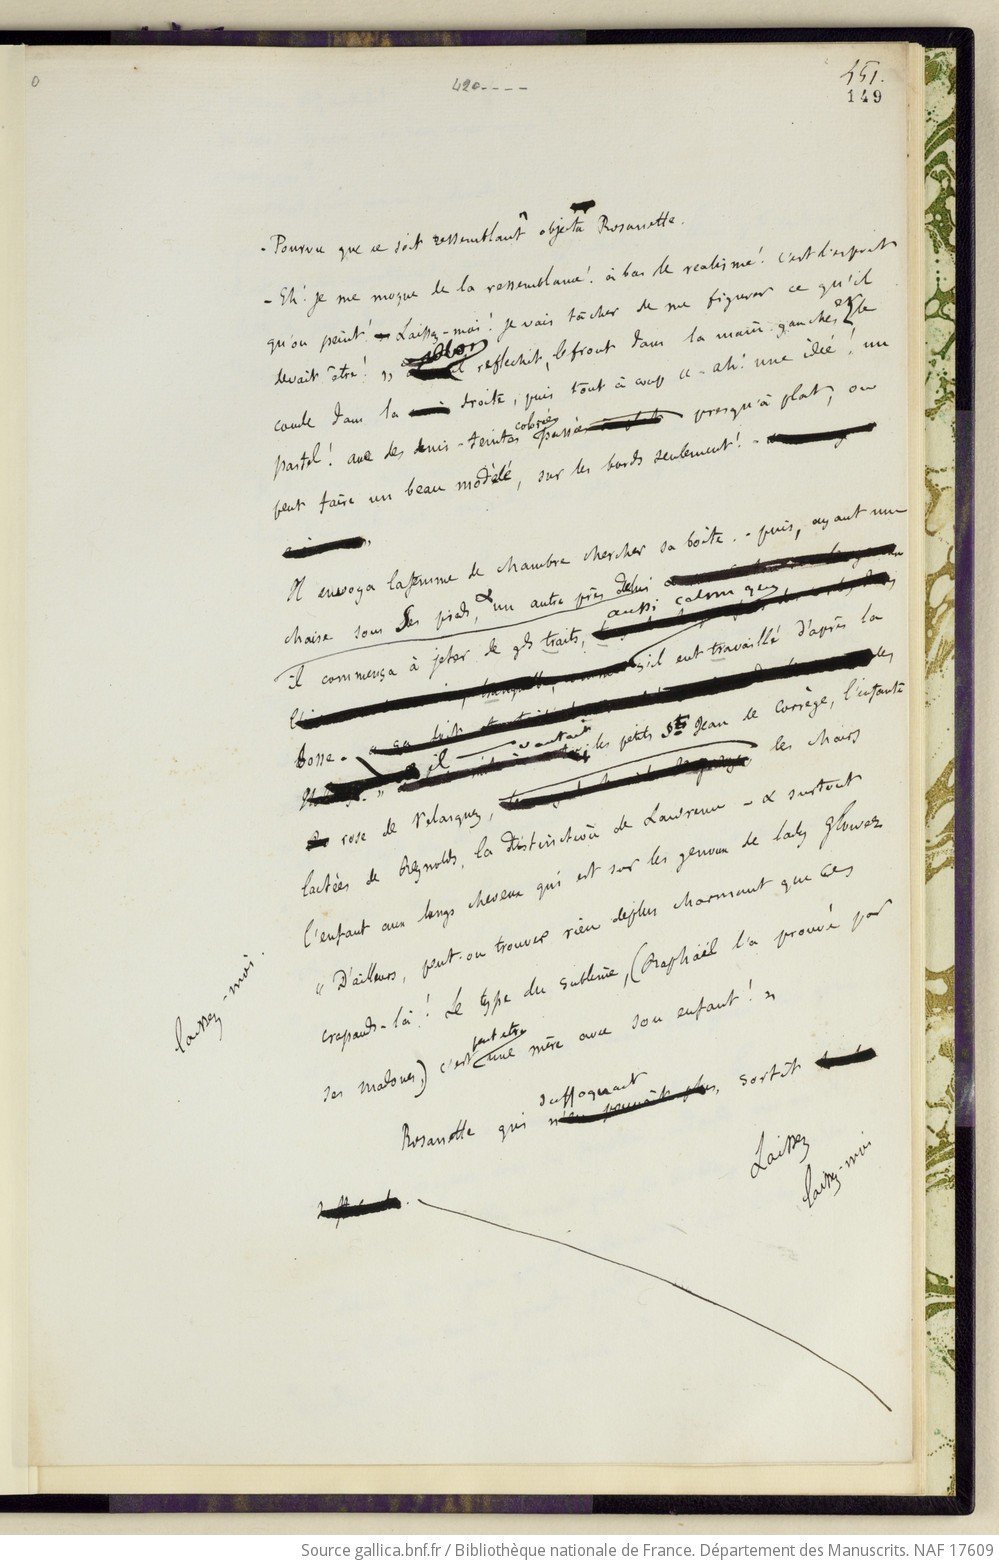 420----
451.
149
- Pourvu que ce soit ressemblant" objecta Rosanette.
- Eh! je me moque de la ressemblance! à bas le realisme! c'est l'esprit
qu'on peint! - Laissez-moi! je vais tâcher de me figurer ce qu'il
devait être! » reflechit, le front dans la main gauche, le
coude dans la droite, puis tout à coup - ah! une idée! un
pastel! avec des demi-teintes colorées passées presqu'à plat, on
peut faire un beau modèlé, sur les bords seulement! -
Il envoya la femme de chambre chercher sa boîte. - puis, ayant une
chaise sous les pieds, & un autre près de lui
il commença à jeter de gds traits, aussi calme que
s'il eut travaillé d'après la
bosse. -
il vantait les petits Sts Jean de Corrège, l'infante
rose de Velasquez, les chairs
lactées de Reynolds, la distinction de Lawrence - & surtout
l'enfant aux longs cheveux qui est sur les genoux de lady Glower
« D'ailleurs, peut-on trouver rien de plus charmant que ces
crapauds-là! Le type du sublime, (Raphaël l'a prouvé par
ses madones,) c'est peut etre une mère avec son enfant! »
Rosanette qui suffoquait n'en pouvait plus, sortit
laissez-moi.
Laissez
laissez-moi
Source gallica.bnf.fr / Bibliothèque nationale de France. Département des Manuscrits. NAF 17609